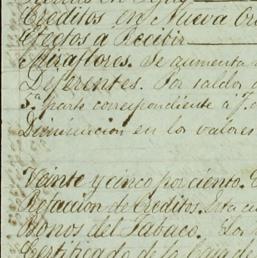 Creditos en Nueva Or
Efectos a Recibir
Miraflores. Se aumenta
Diferentes. Por saldos
5ª parte correspondiente a J.
Diminucion en los valores
Veinte y cinco por ciento.
Relacion de Creditos. Esta
Bonos del Tabaco.
Certificado de la Caja de